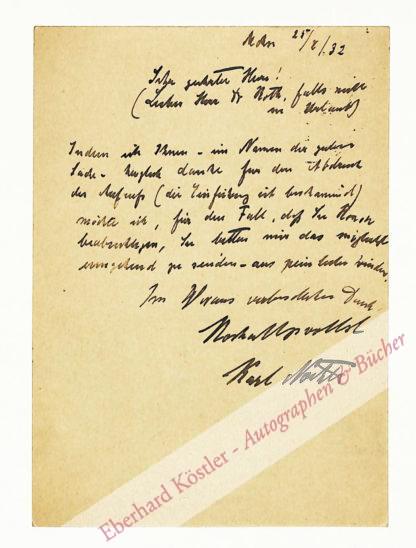 25/8/.32
Sehr geehrter Herr!
(Lieber Herr Dr Roth, falls nicht
im Urlaub)
Indem ich Ihnen - im Namen der guten
Sache - herzlich danke für den Abdruck
des Aufrufs (die Einführung ist
möchte ich, für den Fall, daß Sie Honorar
beabsichtigen, Sie bitten mir das möglichst
umgehend zu senden - aus
Im Voraus verbindlichen Dank
Hochachtungsvollst
Karl
Eberhard Köstler - Autographen & Bücher